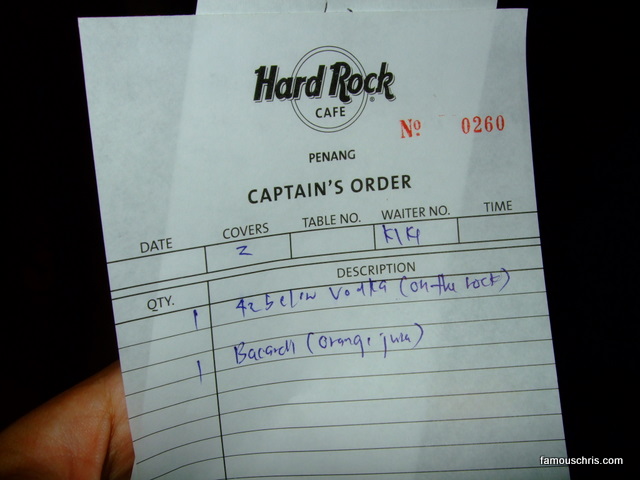 Hard Rock
CAFE
No 0260
PENANG
CAPTAIN'S ORDER
DATE COVERS TABLE NO. WAITER NO. TIME
2 KIKI
QTY. DESCRIPTION
1 42 below Vodka (on the rock)
1 Bacardi (orange
famouschris.com